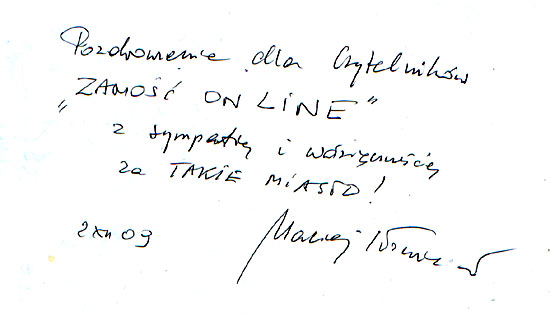 Pozdrowienie dla Czytelników
„ZAMOŚĆ ON LINE”
z sympatią i wdzięcznością
za TAKIE MIASTO!
2 XII 09
Maciej